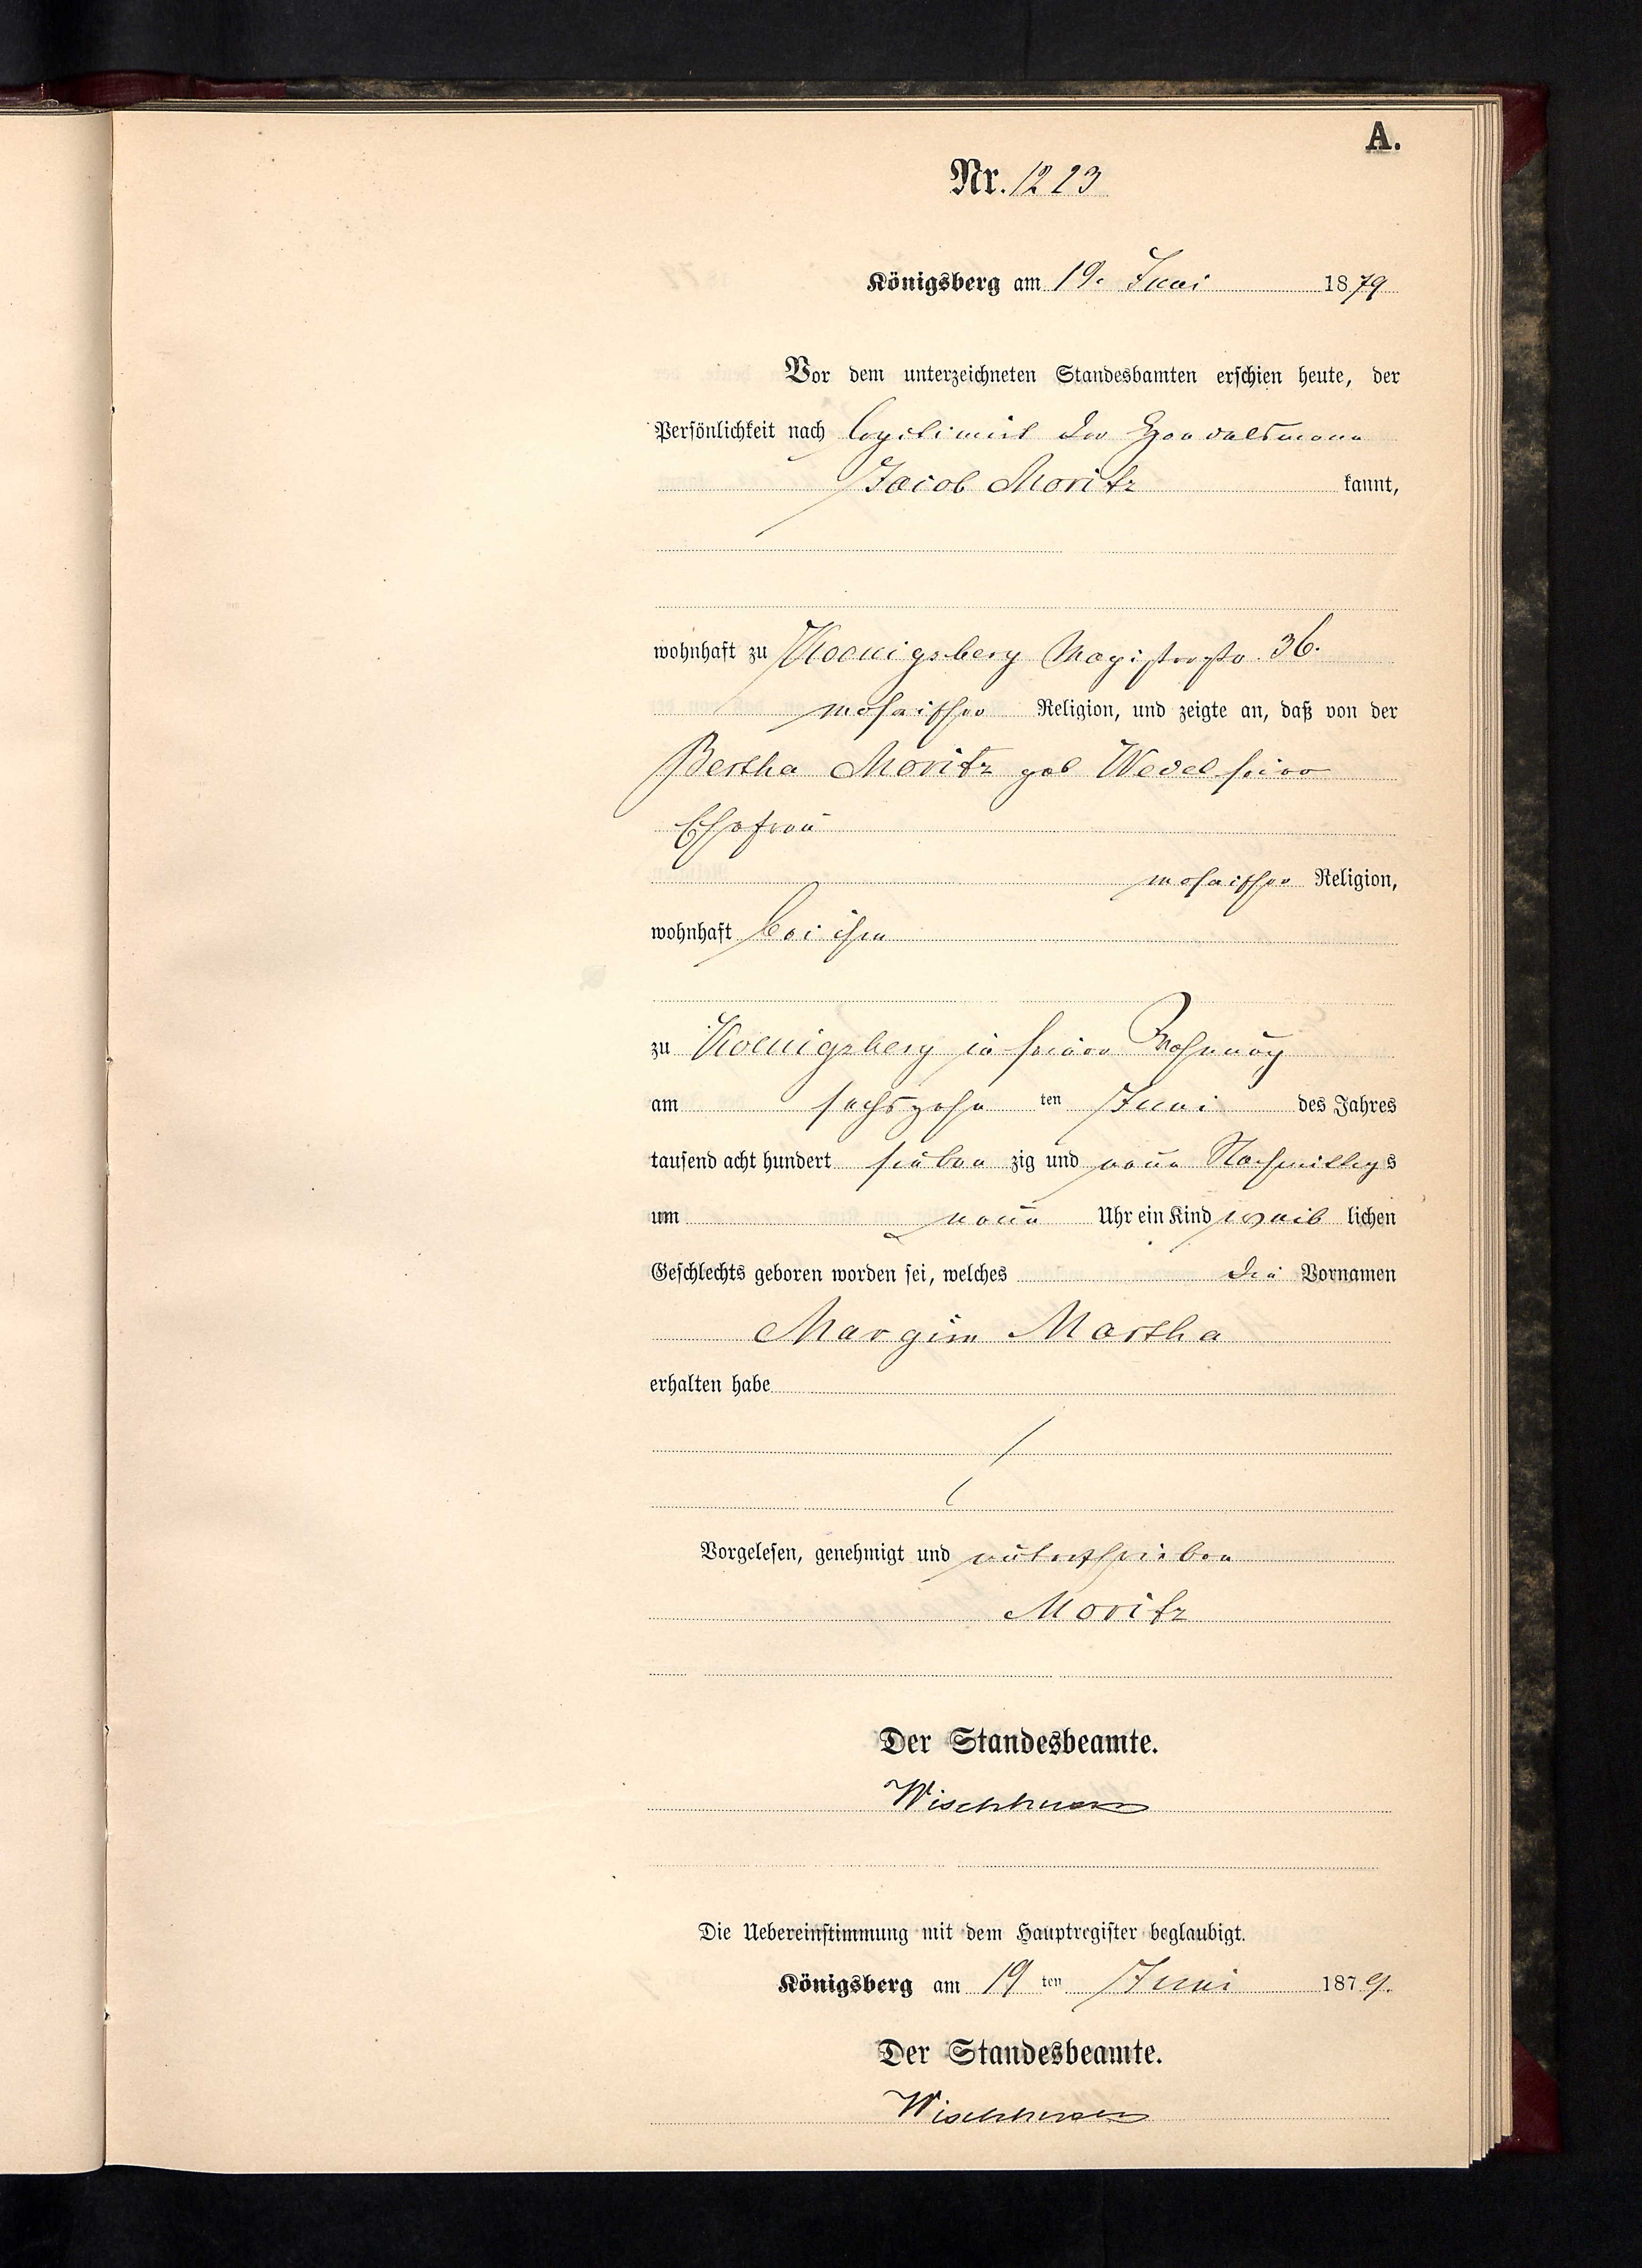 A.
Nr. 1223
Königsberg am 19. Juni 1879
Vor dem unterzeichneten Standesbamten erschien heute, der
Persönlichkeit nach legitimirt der Handelsmann
Jacob Moritz kannt,
wohnhaft zu Koenigsberg Magisterstr. 36.
mosaischer Religion, und zeigte an, daß von der
Bertha Moritz geb Wedel seiner
Ehefrau
mosaischer Religion,
wohnhaft bei ihm
zu Koenigsberg in seiner Wohnung
am sechszehn ten Juni des Jahres
tausend acht hundert sieben zig und neun Nachmittags
um neun Uhr ein Kind weib lichen
Geschlechts geboren worden sei, welches die Vornamen
Margim Martha
erhalten habe
Vorgelesen, genehmigt und unterschrieben
Moritz
Der Standesbeamte.
Die Uebereinstimmung mit dem Hauptregister beglaubigt.
Königsberg am 19 ten Juni 1879.
Der Standesbeamte.